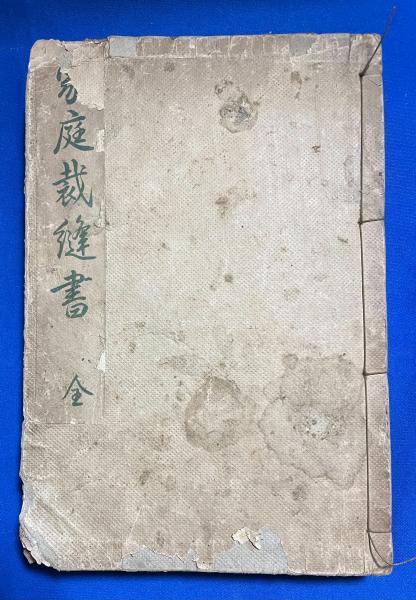 家庭裁縫書 全